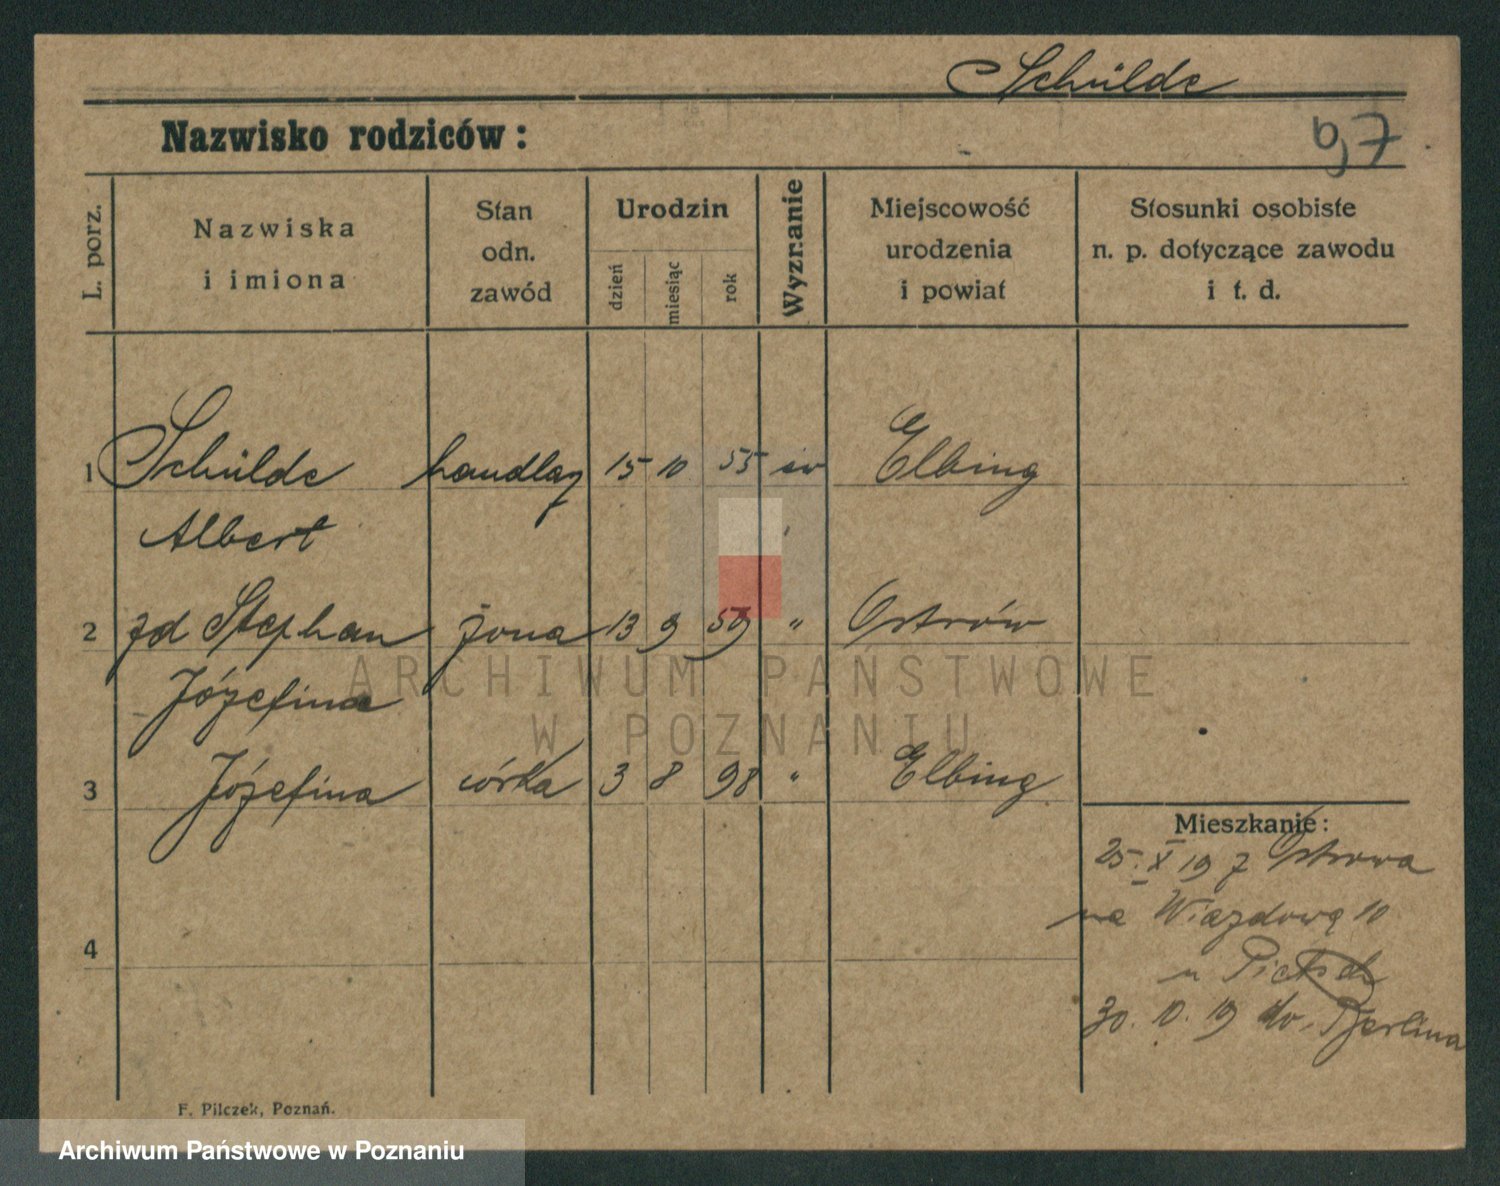 Schülde
Nazwisko rodziców:
97
L. porz.
Nazwiska
i imiona
Stan
odn.
zawód
Urodzin
dzień
miesiąc
rok
Wyznanie
Miejscowość
urodzenia
i powiat
Stosunki osobiste
n. p. dotyczące zawodu
i t. d.
1 Schülde handlarz 15 10 55 ew Elbing
Albert
2 zd Stephan żona 13 9 59 " Ostrów
Józefina
3 Józefina córka 3 8 98 " Elbing
4
Mieszkanie:
25. X 19 z Ostrowa
na Wiazdową 10
u
30. 10. 19 do Berlina
F. Pilczek, Poznań.
ARCHIWUM PAŃSTWOWE
W POZNANIU
Archiwum Państwowe w Poznaniu